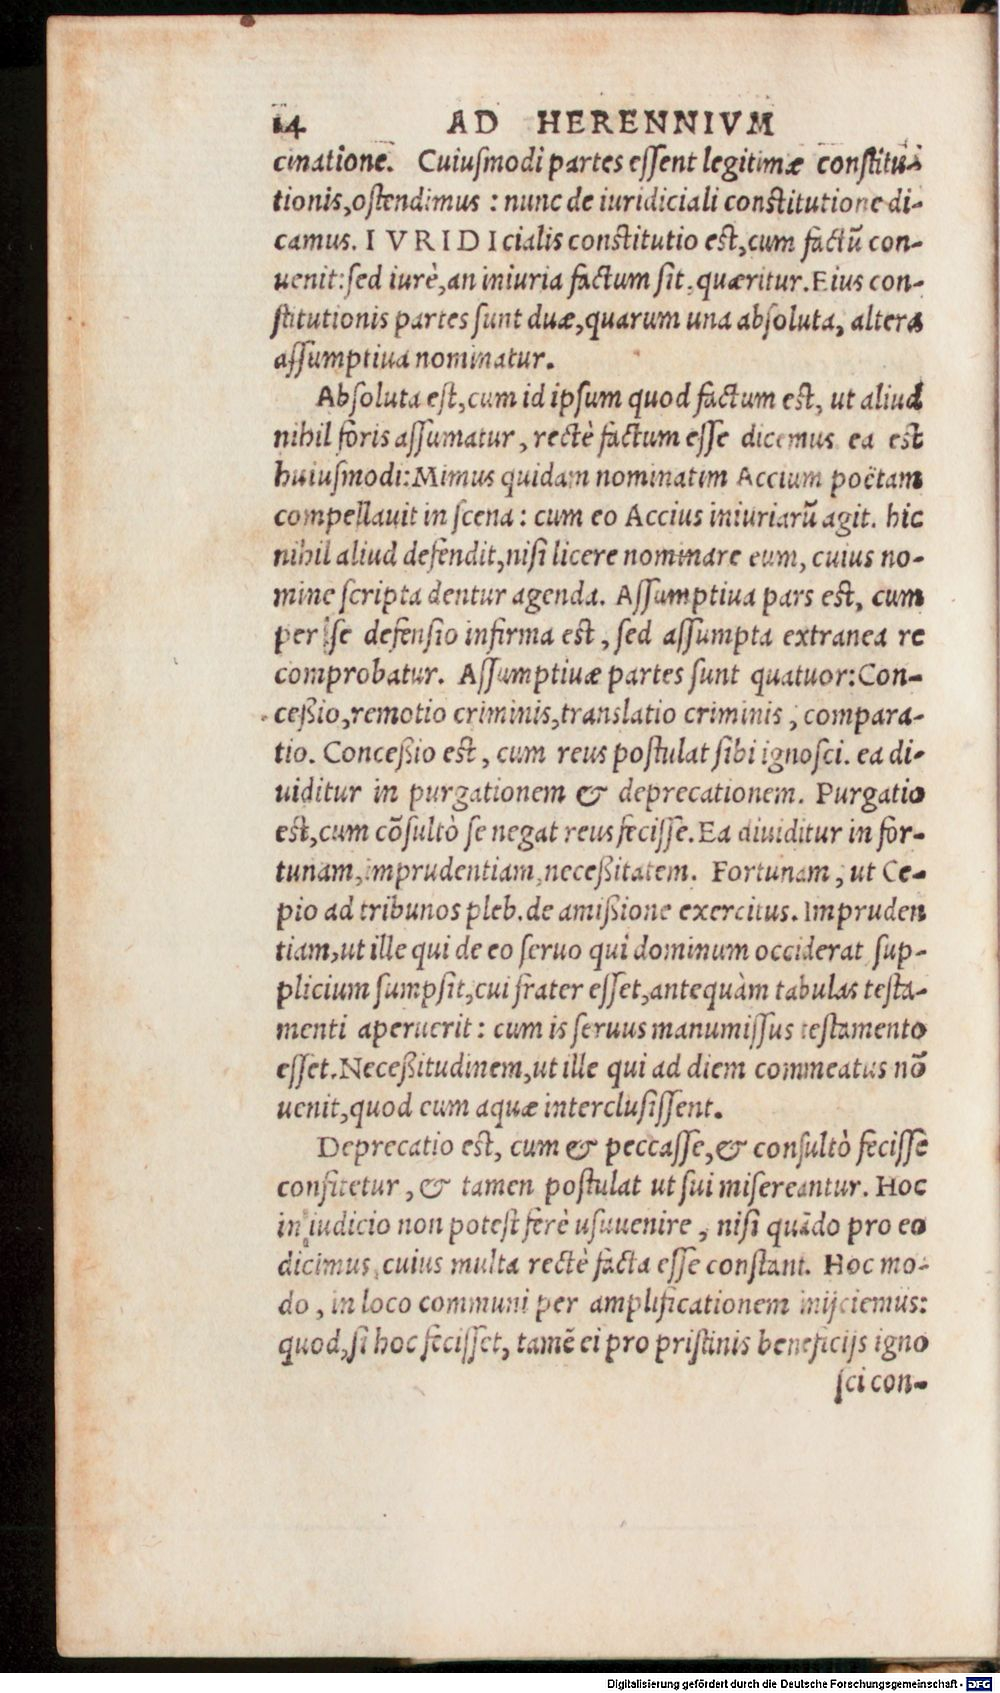 14 AD HERENNIVM
cinatione. Cuiuſmodi partes eſſent legitimæ conſtitu-
tionis,oſtendimus : nunc de iuridiciali conſtitutione di-
camus. I V R I D I cialis conſtitutio eſt,cum factū con-
uenit:ſed iurè,an iniuria factum ſit, quæritur.Eius con-
ſtitutionis partes ſunt duæ,quarum una abſoluta, altera
aſſumptiua nominatur.
Abſoluta eſt,cum id ipſum quod factum eſt, ut aliud
nihil foris aſſumatur, rectè factum eſſe dicemus. ea eſt
huiuſmodi:Mimus quidam nominatim Accium poëtam
compellauit in ſcena : cum eo Accius iniuriarū agit. hic
nihil aliud defendit,niſi licere nominare eum, cuius no-
mine ſcripta dentur agenda. Aſſumptiua pars eſt, cum
per ſe defenſio infirma eſt, ſed aſſumpta extranea re
comprobatur. Aſſumptiuæ partes ſunt quatuor:Con-
ceßio,remotio criminis,translatio criminis, compara-
tio. Conceßio eſt, cum reus poſtulat ſibi ignoſci. ea di-
uiditur in purgationem & deprecationem. Purgatio
eſt,cum cōſultò ſe negat reus feciſſe.Ea diuiditur in for-
tunam,imprudentiam,neceßitatem. Fortunam, ut Ce-
pio ad tribunos pleb.de amißione exercitus. Impruden
tiam,ut ille qui de eo ſeruo qui dominum occiderat ſup-
plicium ſumpſit,cui frater eſſet,antequàm tabulas teſta-
menti aperuerit : cum is ſeruus manumiſſus teſtamento
eſſet.Neceßitudinem,ut ille qui ad diem commeatus nō
uenit,quod cum aquæ interclufiſſent.
Deprecatio eſt, cum & peccaſſe,& conſultò feciſſe
confitetur, & tamen poſtulat ut ſui miſereantur. Hoc
in iudicio non poteſt ferè uſuuenire, niſi quādo pro eo
dicimus, cuius multa rectè facta eſſe conſtant. Hoc mo-
do, in loco communi per amplificationem inijciemus:
quod,ſi hoc feciſſet, tamē ei pro priſtinis beneficijs igno
ſci con-
Digitalisierung gefördert durch die Deutsche Forschungsgemeinschaft - DFG